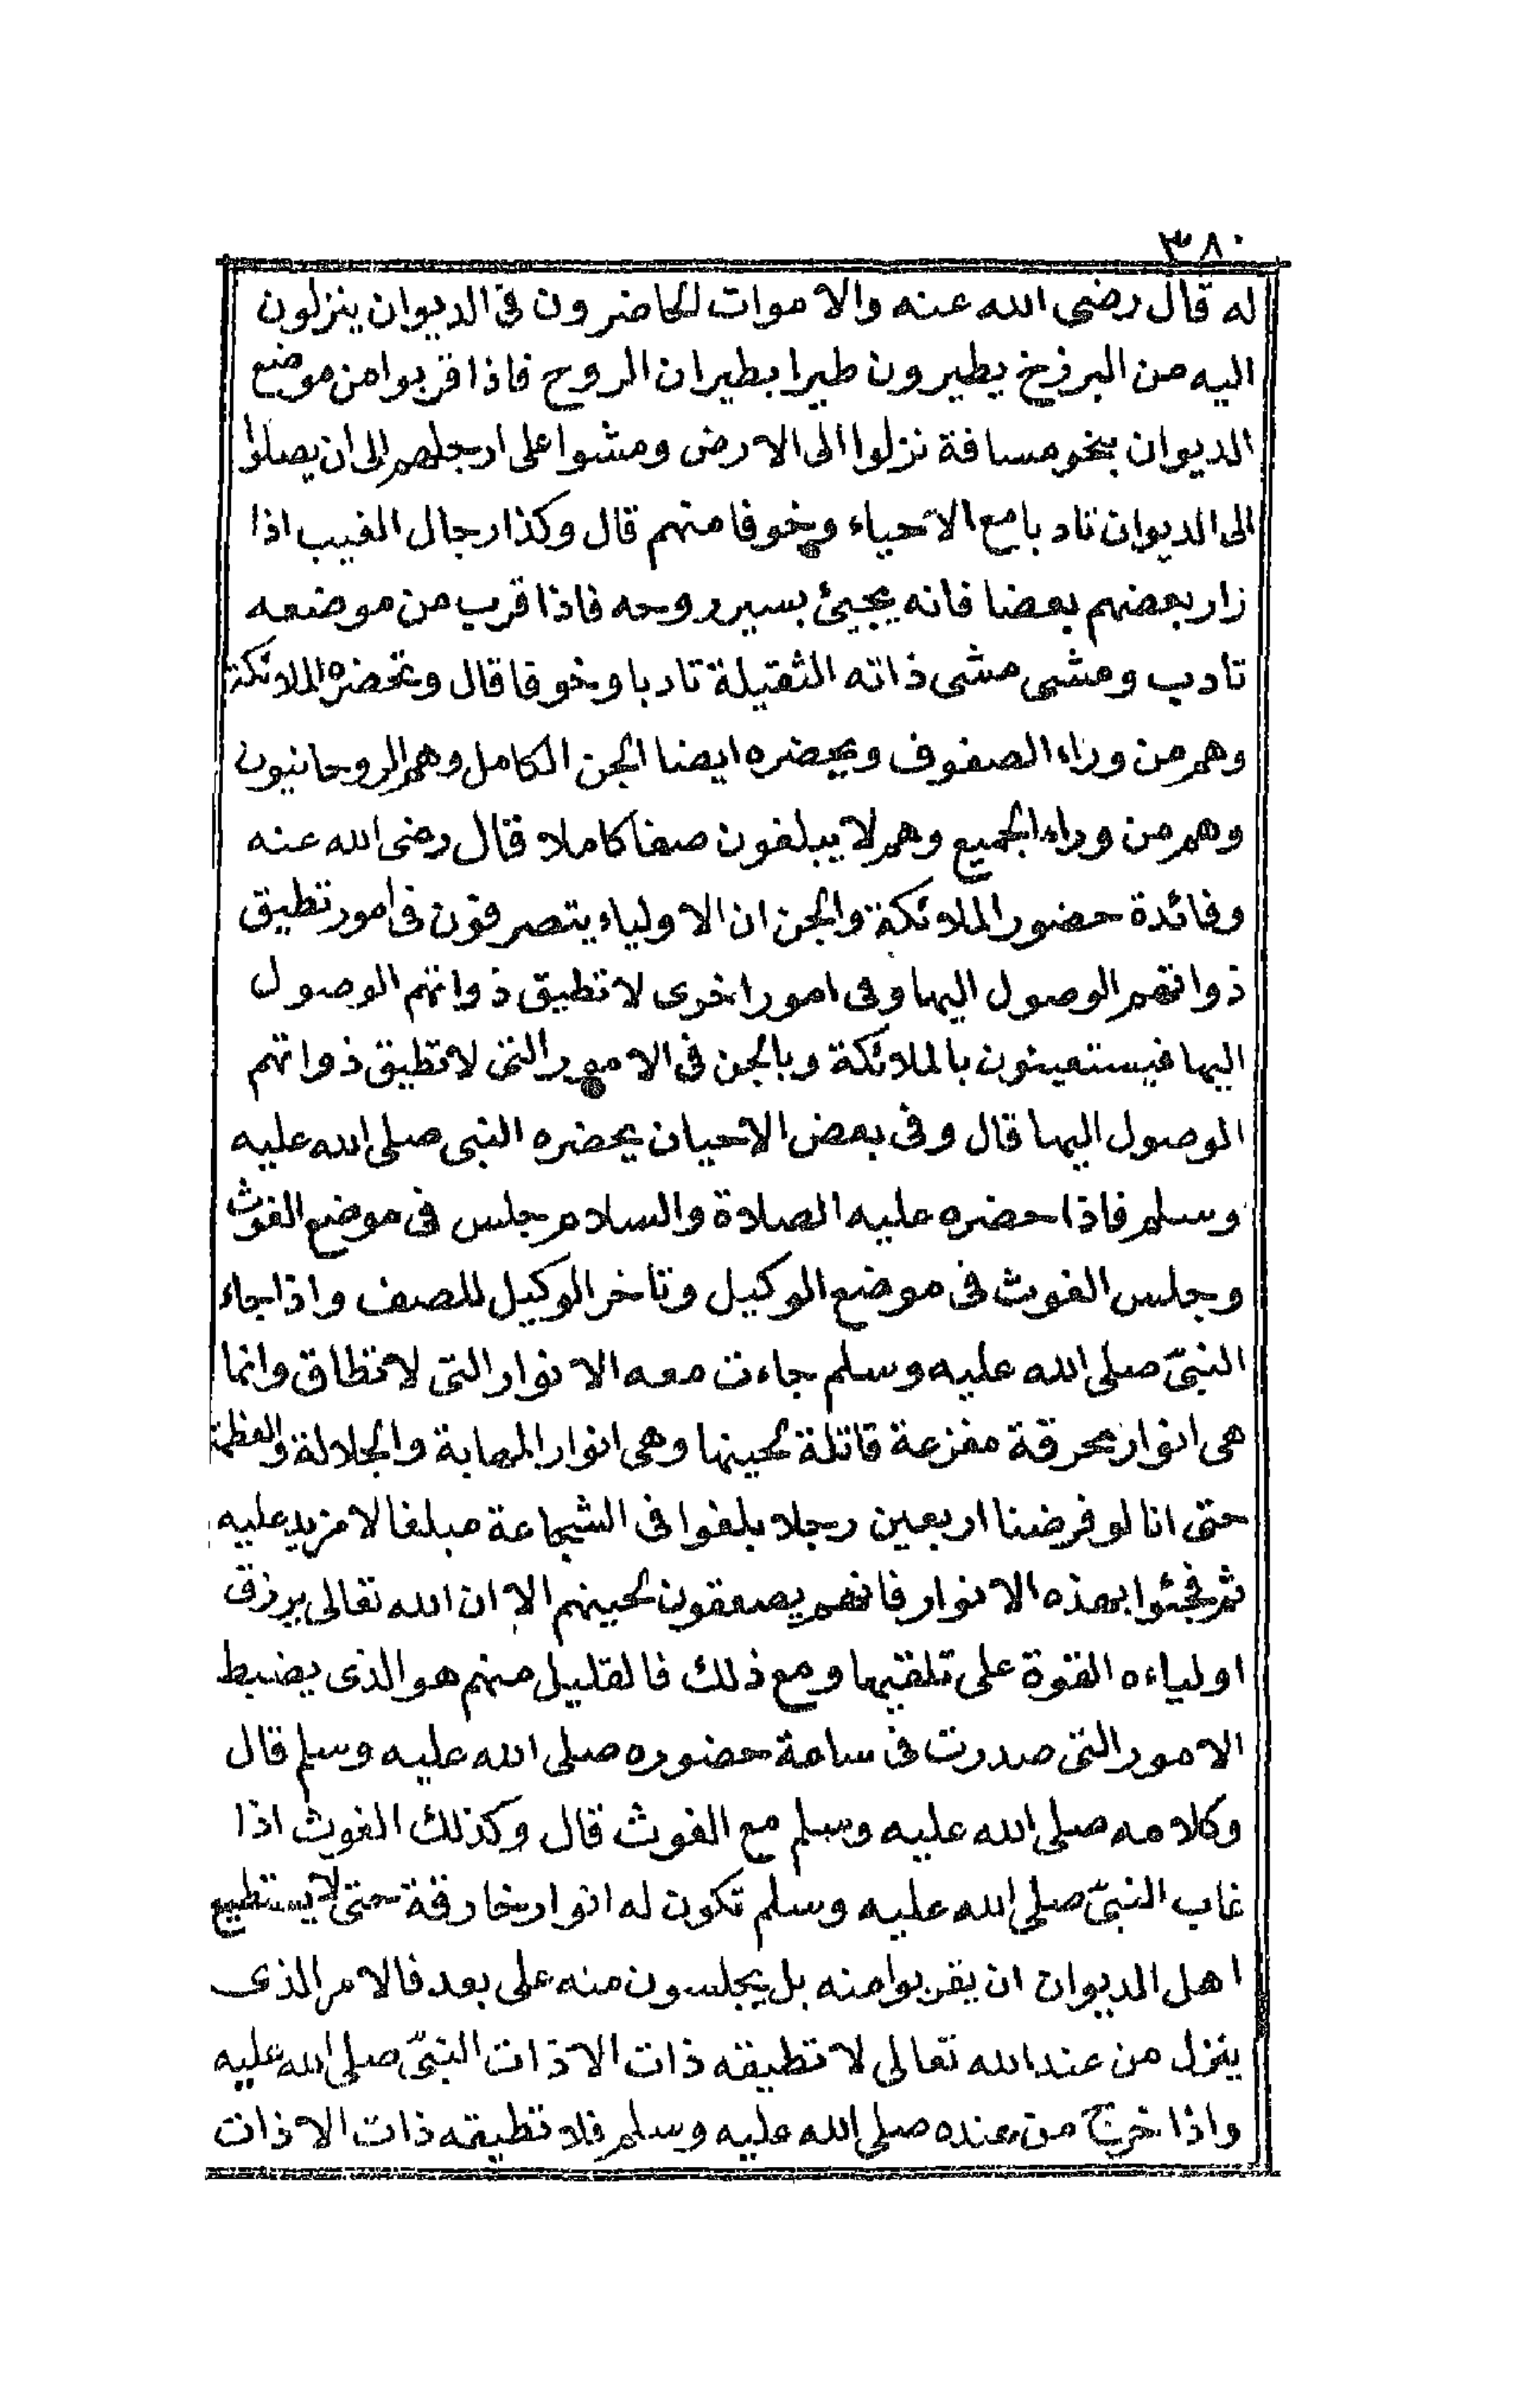 ٣٨٠
له قال رضى الله عنه والاموات الحاضرون فى الديوان ينزلون
اليه من البرزخ يطيرون طيرا بطيران الروح فاذا قربوا من موضع
الديوان بنحو مسافة نزلوا الى الارض ومشوا على ارجلهم الى ان يصلوا
الى الديوان تادبا مع الاحياء وخوفا منهم قال وكذا رجال الغيب اذا
زار بعضهم بعضا فانه يجيئ بسير روحه فاذا قرب من موضعه
تادب ومشى مشى ذاته الثقيلة تادبا وخوفا قال وتحضره الملائكة
وهم من وراء الصفوف ويحضره ايضا الجن الكامل وهم الروحانيون
وهم من وراء الجميع وهم لا يبلغون صفا كاملا قال رضى الله عنه
وفائدة حضور الملائكة والجن ان الاولياء يتصرفون فى امور تطيق
ذواتهم الوصول اليها وفى امور اخرى لا تطيق ذواتهم الوصول
اليها فيستعينون بالملائكة وبالجن فى الامور التى لا تطيق ذواتهم
الوصول اليها قال وفى بعض الاحيان يحضره النبى صلى الله عليه
وسلم فاذا حضره عليه الصلاة والسلام جلس فى موضع الغوث
وجلس الغوث فى موضع الوكيل وتاخر الوكيل للصف واذا جاء
النبىّ صلى الله عليه وسلم جاءت معه الانوار التى لا تطاق وانما
هى انوار محرقة مفزعة قاتلة لحينها وهى انوار المهابة والجلالة والعظمة
حتى انا لو فرضنا اربعين رجلا بلغوا فى الشجاعة مبلغا لا مزيد عليه
ثم فجئوا بهذه الانوار فانهم يصعقون لحينهم الا ان الله تعالى يرزق
اولياءه القوة على تلقيها ومع ذلك فالقليل منهم هو الذى يضبط
الامور التى صدرت فى ساعة حضوره صلى الله عليه وسلم قال
وكلامه صلى الله عليه وسلم مع الغوث قال وكذلك الغوث اذا
غاب النبىّ صلى الله عليه وسلم تكون له انوار خارقة حتى لا يستطيع
اهل الديوان ان يقربوا منه بل يجلسون منه على بعد فالامر الذى
ينزل من عند الله تعالى لا تطيقه ذات الا ذات النبىّ صلى الله عليه
واذا خرج من عنده صلى الله عليه وسلم فلا تطيقه ذات الا ذات